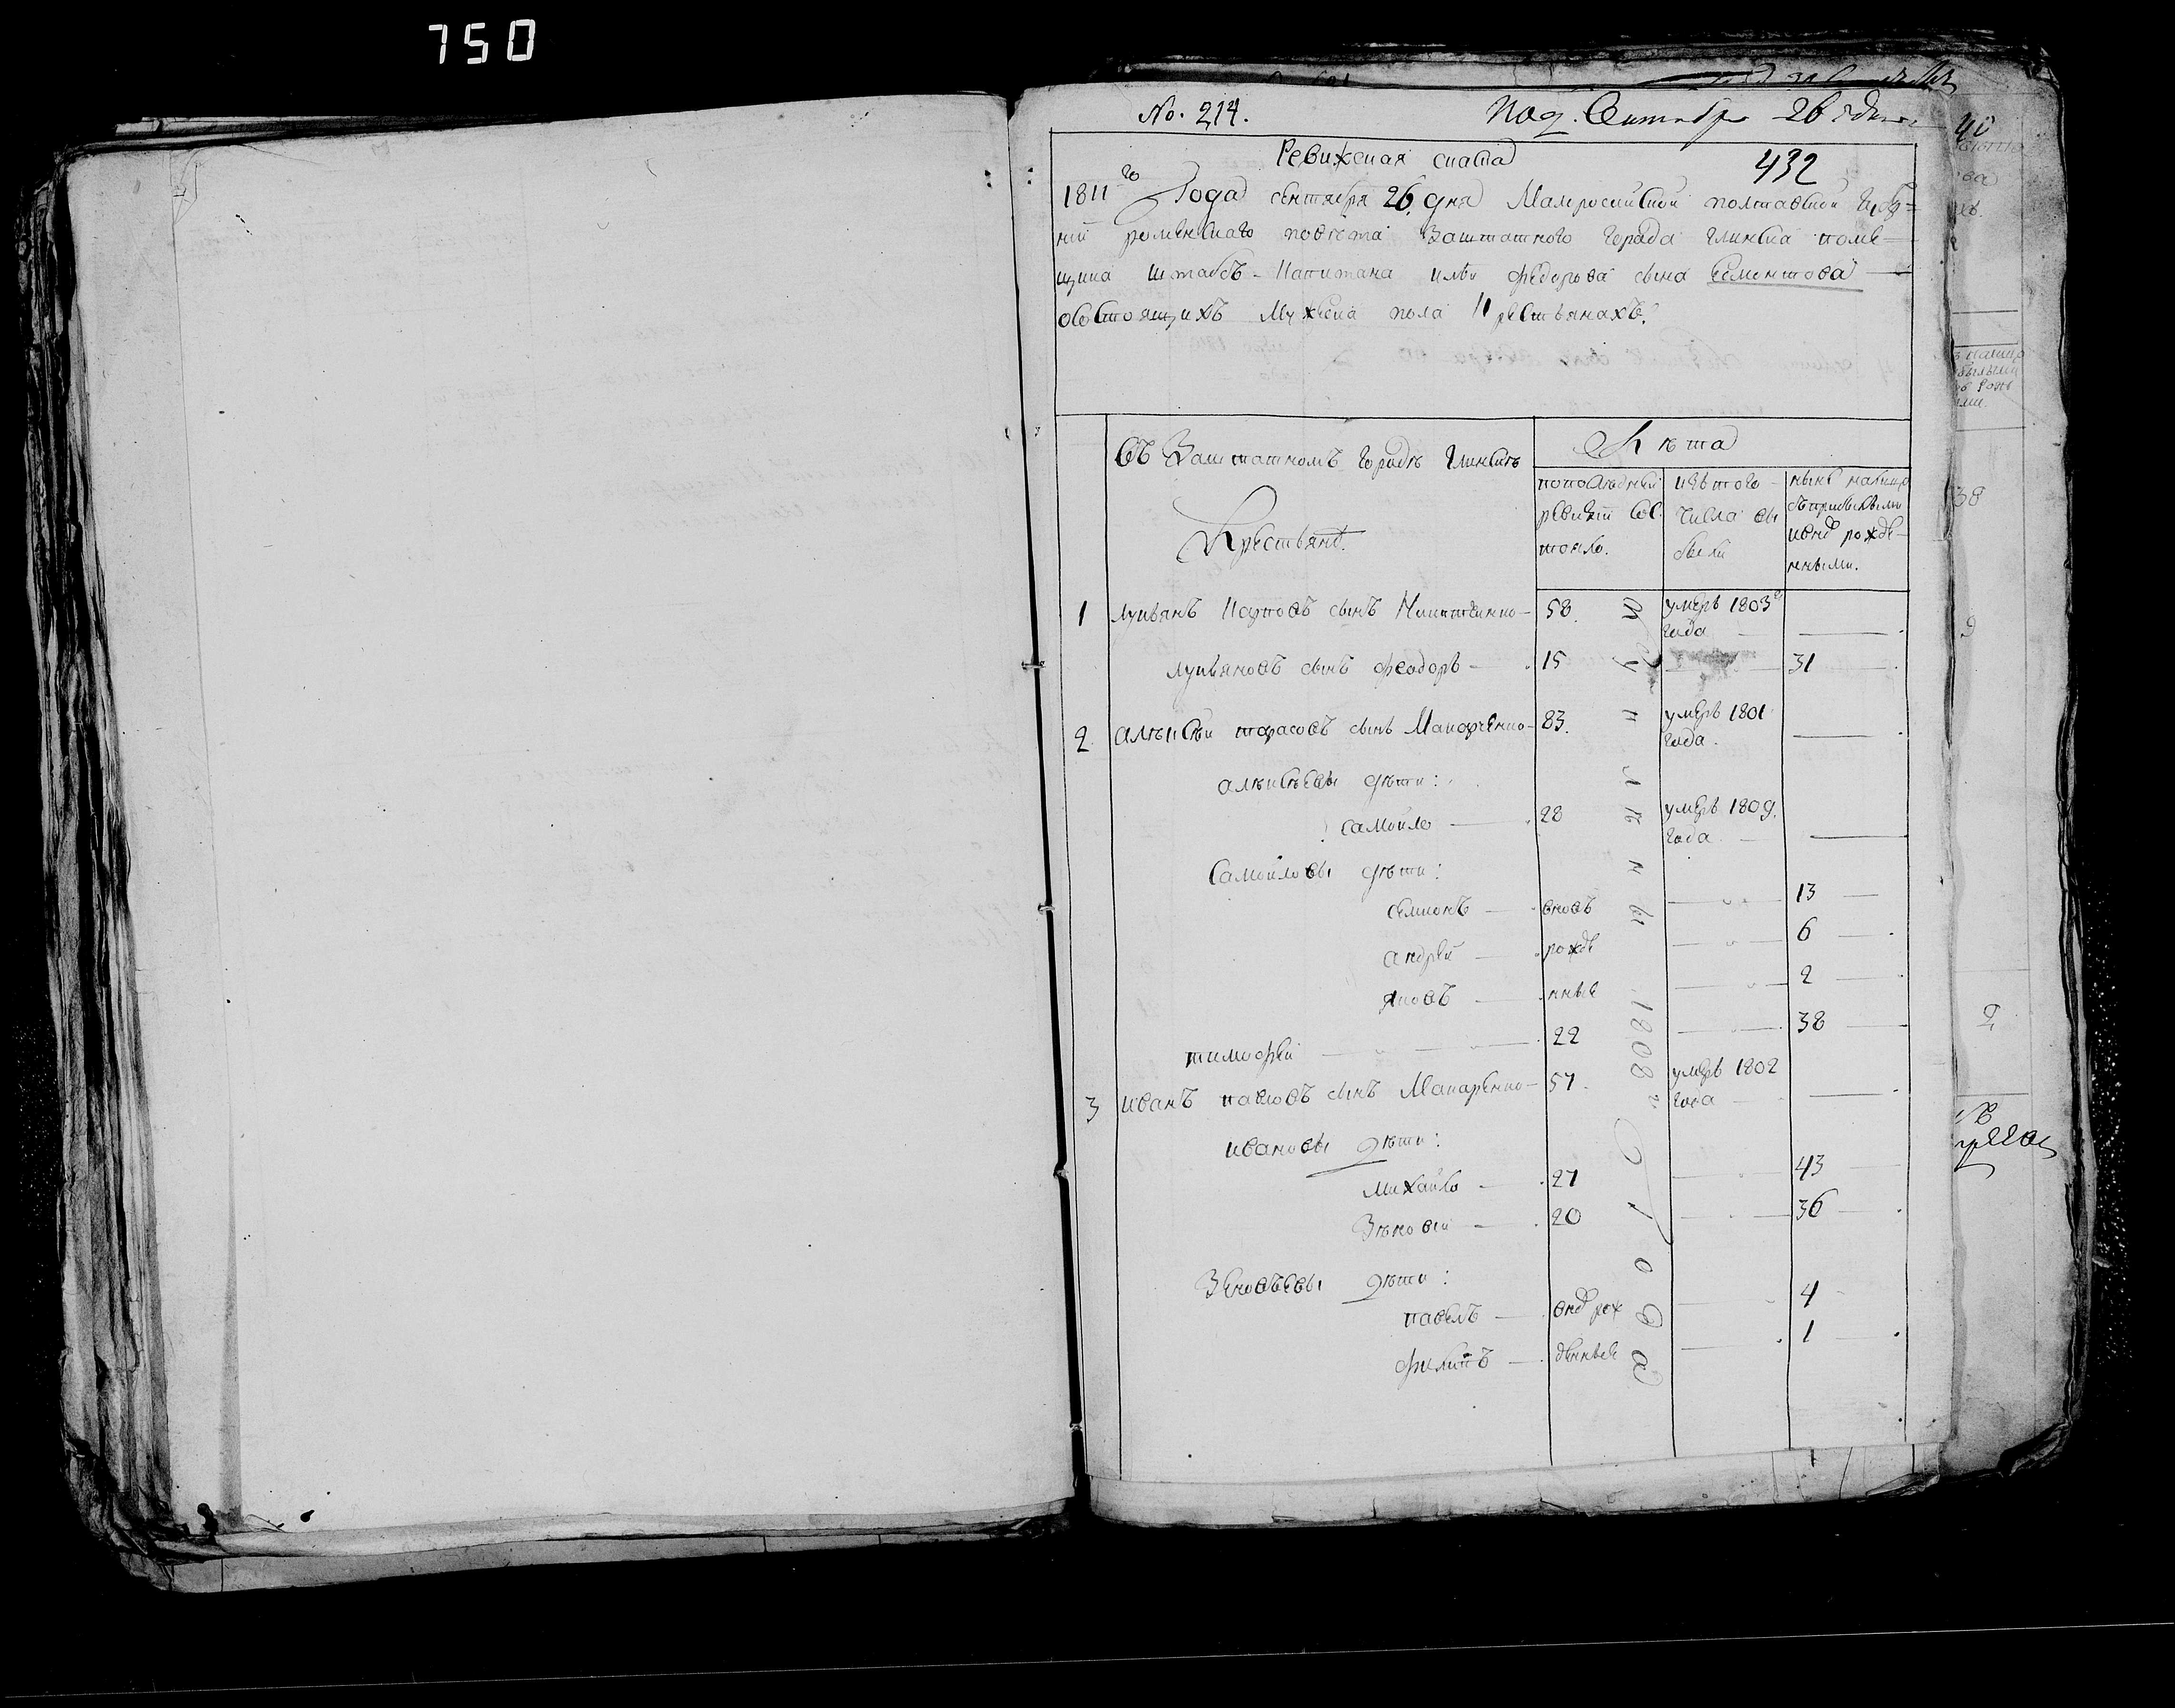 750
No. 214.
Под. Сентября 26 дня
Ревижская сказка
432
1811го Года сентября 26. дня Малоросийской полтавской губер-
нии роменскаго повѣта Заштатного города глинска поме-
щика штабсъ-капитана ильи федорова сына
о состоящихъ мужеска пола крестьянахъ.
Въ Заштатномъ городѣ глинскѣ
Крестьянъ.
Лѣта
по последней ревизіи сос. тояло.
изъ того числа вы были
нынѣ налицо съ прибылыми и внов рожде-нными.
1 лукьянъ сынъ 58. умеръ 1803 года —
лукьяновъ сынъ феодоръ — 15 — 31
2 алѣксѣи тарасовъ сынъ Макаренко — 83. умеръ 1801 года. —
алѣксѣевы дѣти:
самойло — 28 умеръ 1809. года —
Самойловы дѣти:
семионъ — вновь — 13
андрей — рожде — 6
яковъ — нные — 2
тимофей — 22 — 38
3 иванъ павловъ сынъ Макаренко — 57. умеръ 1802 года —
ивановы дѣти:
михайло — 27 — 43
Зѣновій — 20 — 36
Зѣновъевы дѣти:
павелъ — внов рож — 4
филипъ — денные — 1
куплены 1808г Года